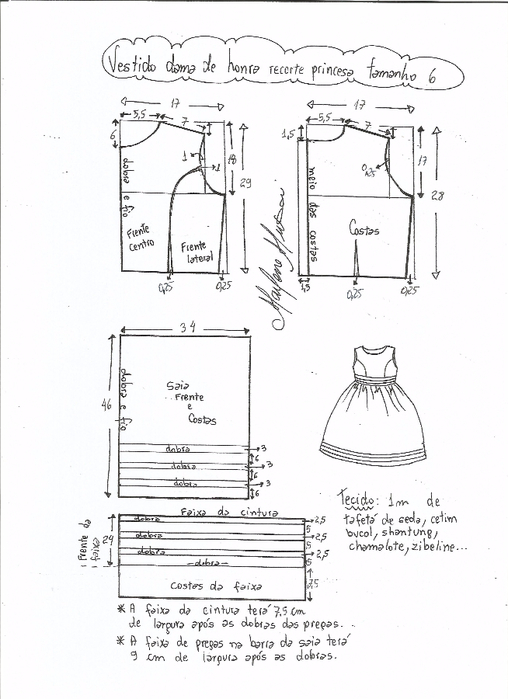 Vestido dama de honra recorte princesa tamanho 6
17
5,5
7
6
1
1
18
29
dobra e fio
Frente
centro
Frente
lateral
0,25
0,25
17
5,5
7
1,5
0,25
17
28
meio das costas
Costas
1,5
0,25
0,25
34
46
dobra e fio
Saia
Frente
e
Costas
dobra
3
6
dobra
3
6
dobra
3
6
Tecido: 1m de
tafetá de seda, cetim
bucol, shantung,
chamalote, zibeline...
Faixa da cintura
Frente da
faixa
dobra
2,5
5
dobra
2,5
5
dobra
2,5
5
dobra
Costas da faixa
* A faixa da cintura terá 7,5 cm
de largura após as dobras das pregas...
* A faixa de pregas na barra da saia terá
9 cm de largura após as dobras.